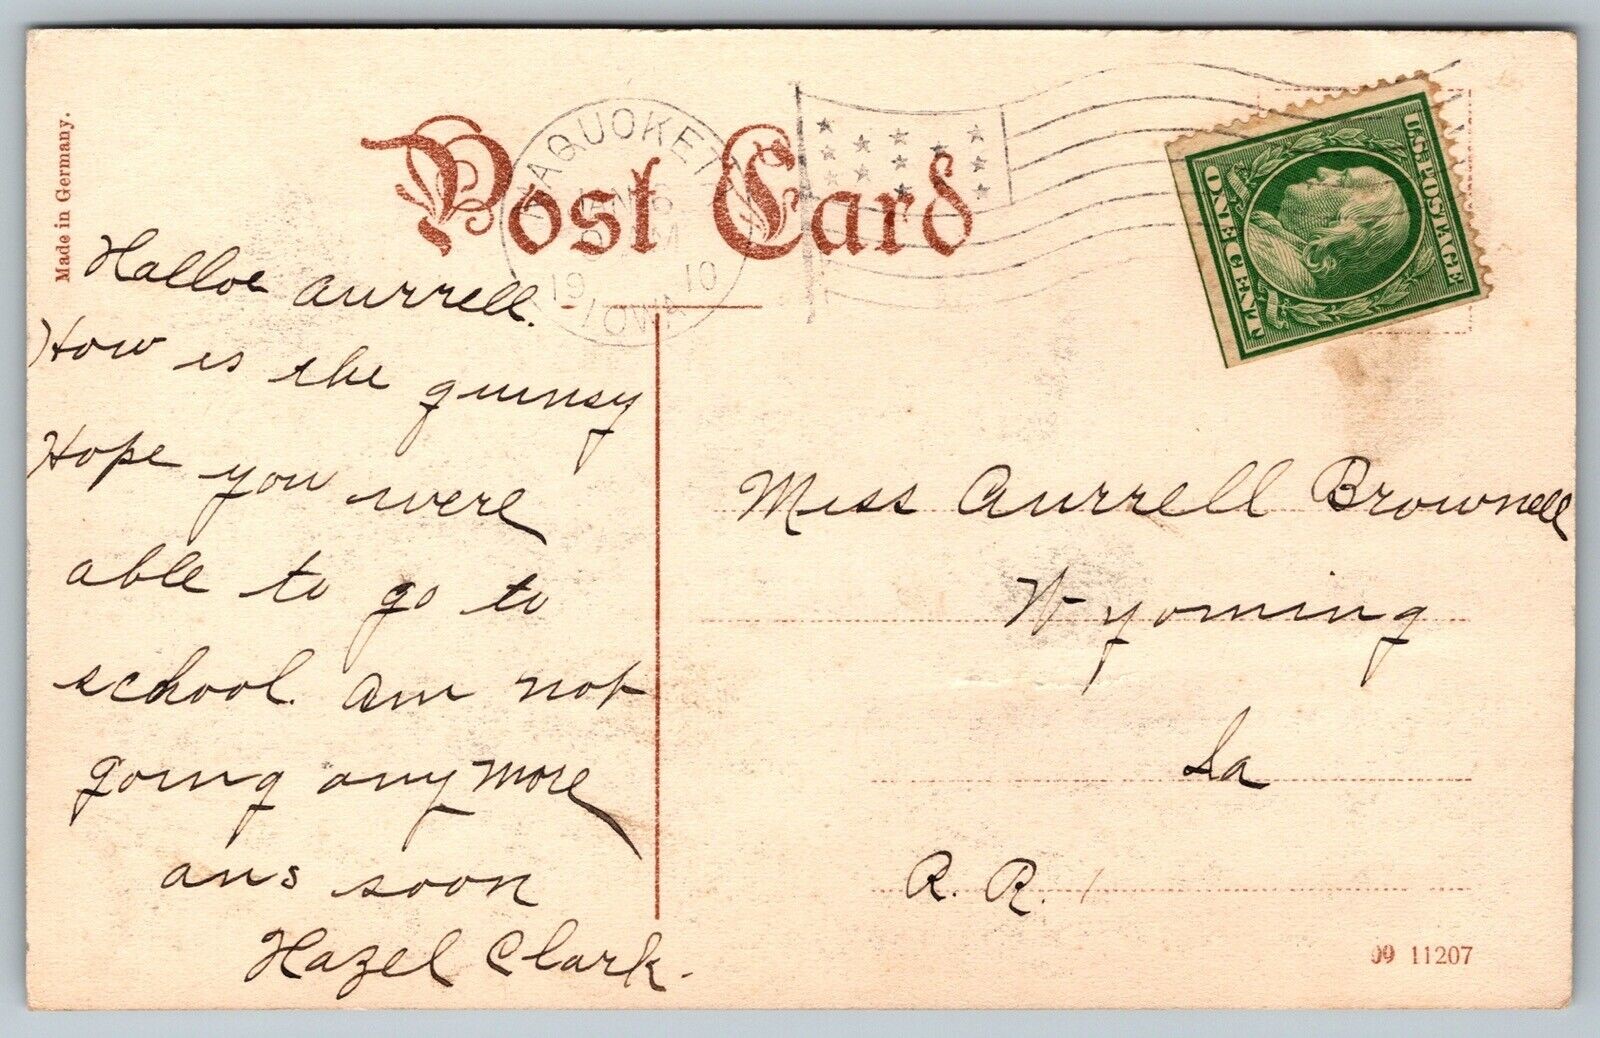 Made in Germany.
Post Card
MAQUOKETA
JAN 6
19 10
IOWA
U.S. POSTAGE
ONE CENT
Halloe Aurrell.
How is the quinsy
Hope you were
able to go to
school. Am not
going any more
ans soon
Hazel Clark.
Miss Aurrell Brownell
Wyoming
Ia
R. R. 1
09 11207